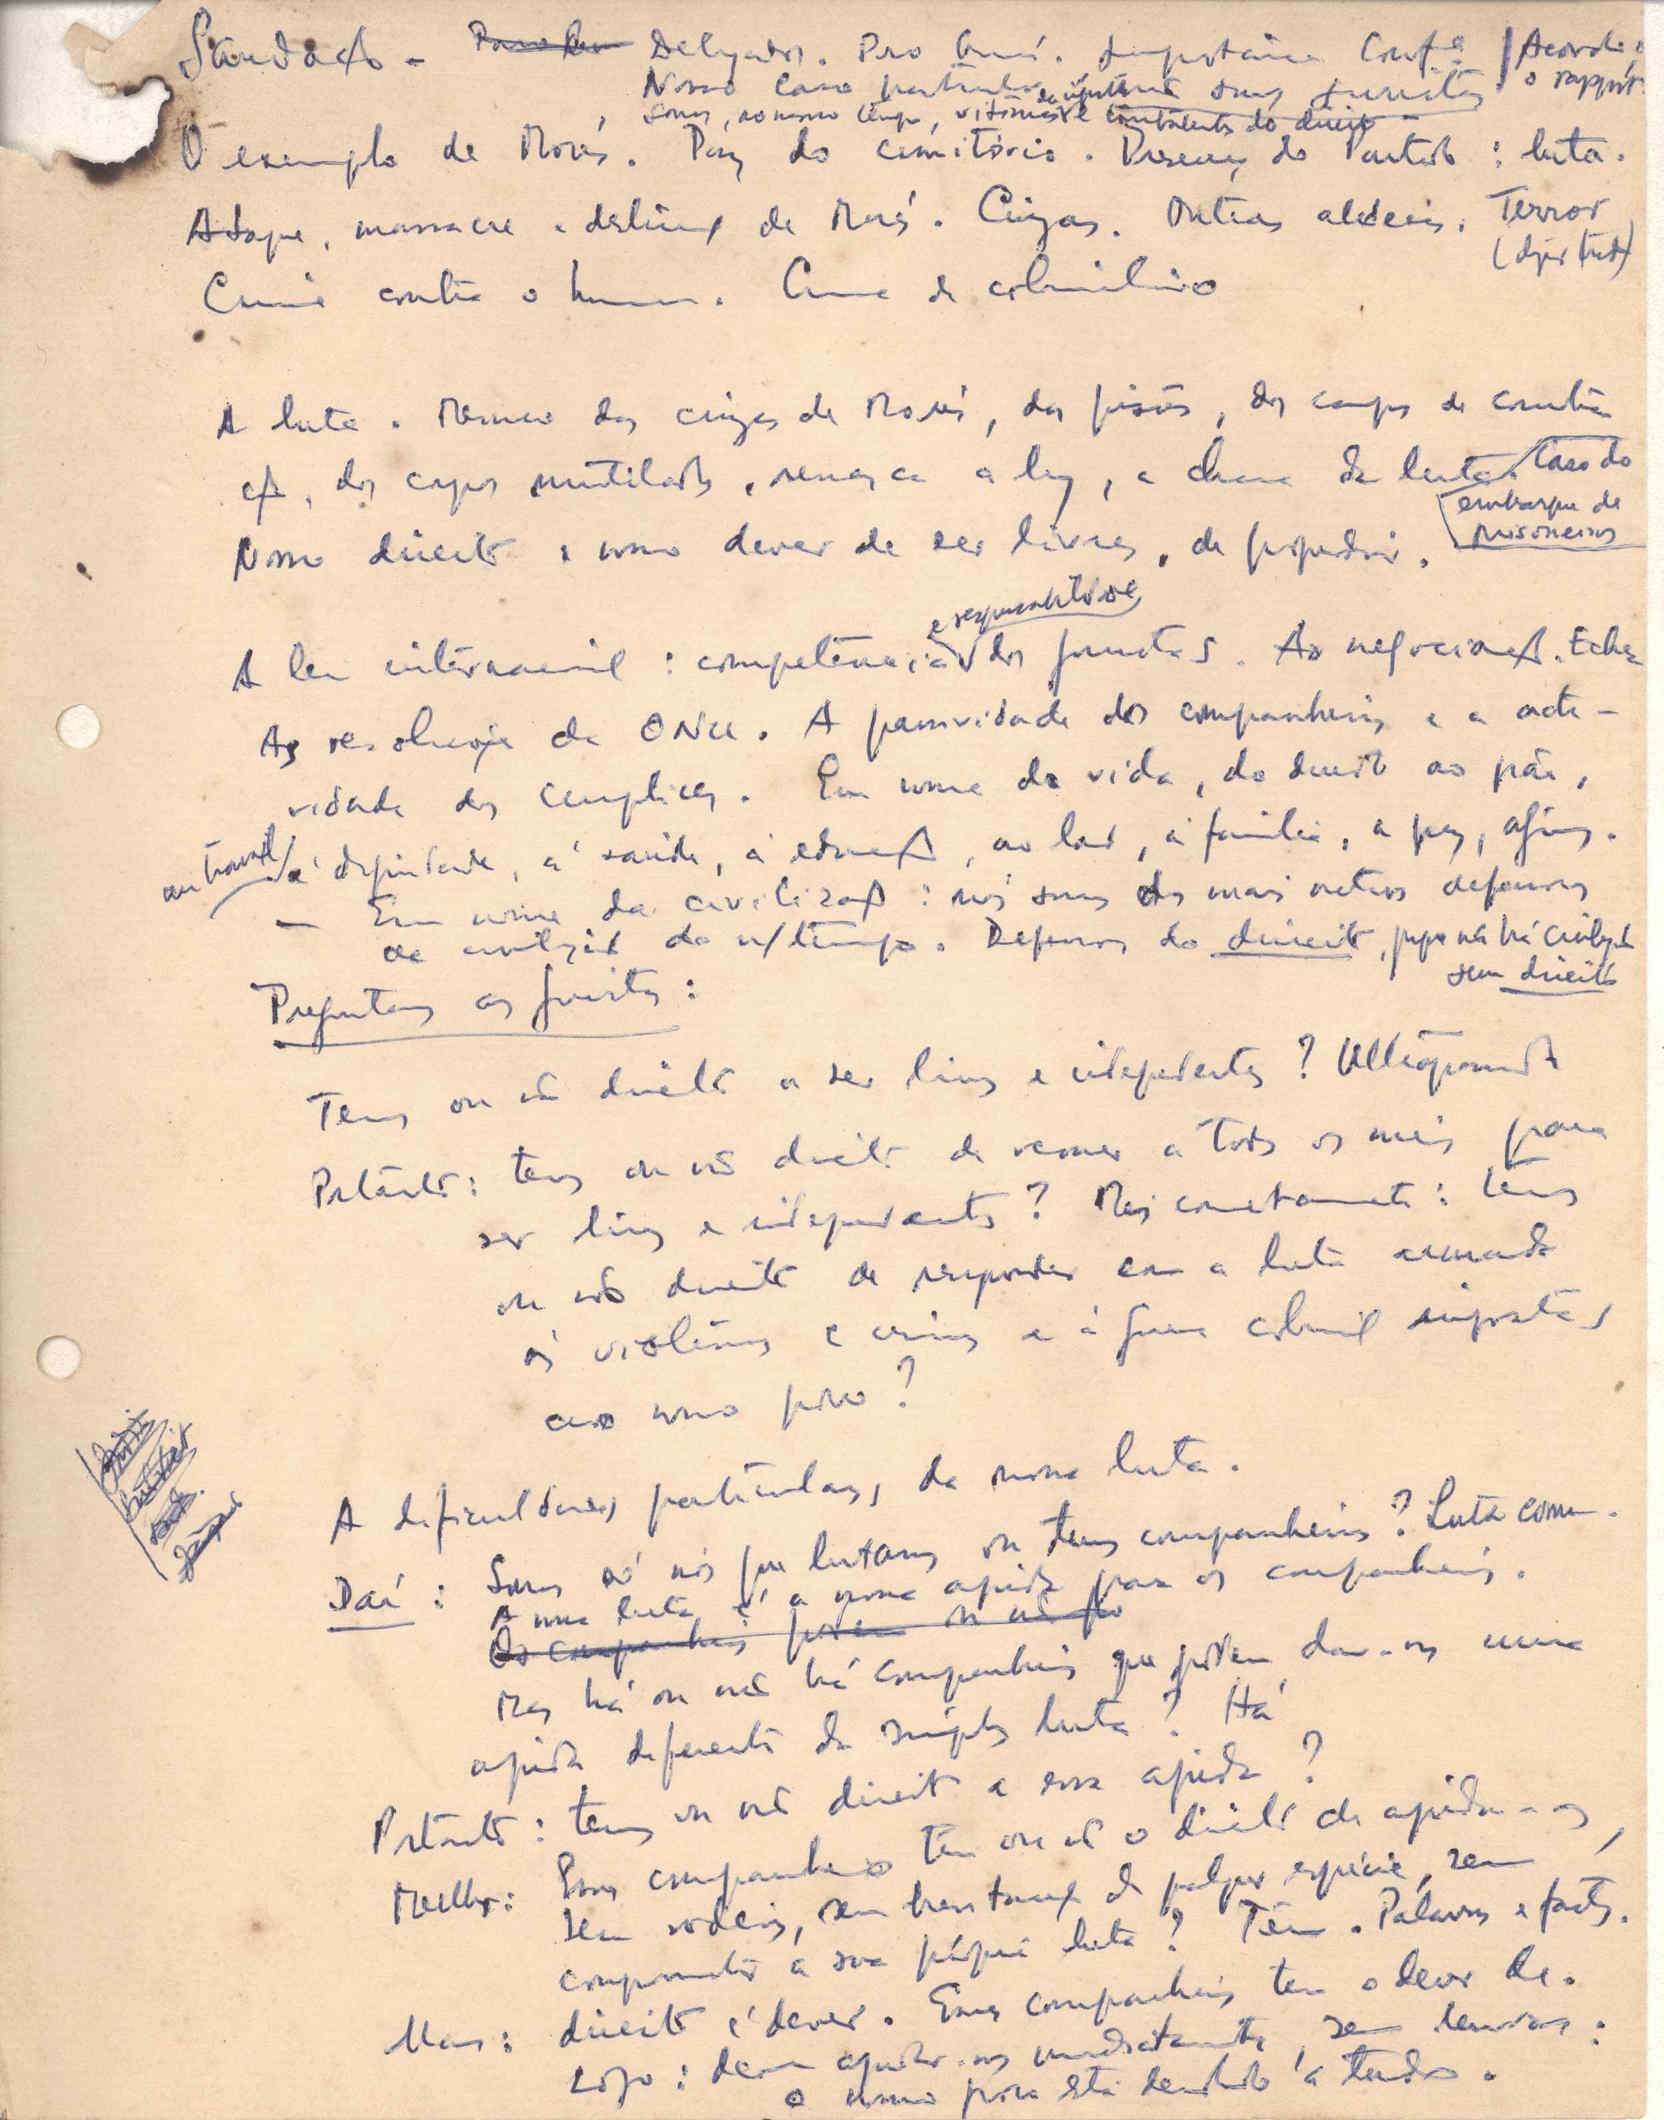 Saudação - Delegados. Pro Guiné. Importância Confª / Acordo c/ o rapport
Nosso caso particular somos juristas
somos, ao mesmo tempo, vítimas e combatentes do direito -
O exemplo de Morés. Paz do cemitério. Presença do Partido : luta.
Ataque, massacre e destruição de Morés. Cinzas. Outras aldeias. Terror
Crime contra o homem. Crime de colonialismo
A luta. Mesmo das cinzas de Morés, das prisões, dos campos de concentra
ção, dos corpos mutilados, renasce a luz, a chama da luta. Caso do
embarque de
prisioneiros
Nosso direito e nosso dever de ser livres, de progredir.
e responsabilidade
A lei internacional : competência dos juristas. As negociações.
As resoluções da ONU. A passividade dos companheiros e a acti-
vidade dos cúmplices. Em nome da vida, do direito ao pão,
ao trabalho / à dignidade, à saúde, à educação, ao lar, à família, à paz,
- Em nome da civilização : nós somos dos mais activos defensores
da civilização do n/ tempo. Defensores do direito, porque não há civilização
sem direito
Perguntamos aos juristas :
Temos ou não direito a ser livres e independentes ?
Portanto : temos ou não direito de recorrer a todos os meios para
ser livres e independentes ? Mais concretamente : temos
ou não direito de responder com a luta armada
às violências e crimes e à guerra colonial impostas
ao nosso povo ?
A dificuldades particulares da nossa luta.
Daí : Somos só nós que lutamos ou temos companheiros ? Luta comum.
A nossa luta é a nossa ajuda para os companheiros.
Os companheiros podem ou não
Mas há ou não há companheiros que podem dar-nos uma
ajuda diferente da simples luta ? Há
Portanto : temos ou não direito a essa ajuda ?
Melhor : Esses companheiros têm ou não o direito de ajudar-nos,
sem rodeios, sem hesitação de qualquer espécie, sem
comprometer a sua própria luta ? Têm. Palavras e factos.
Mas : direito é dever. Esses companheiros têm o dever de.
Logo : devem ajudar-nos imediatamente, sem demoras :
o nosso povo está decidido a tudo.